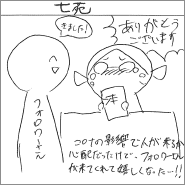 七死
きました!
ありがとう
ございます
フォロワーさん
本
コロナの影響で人が来るか
心配だったけど、フォロワーさん
が来てくれて嬉しくなった…!!